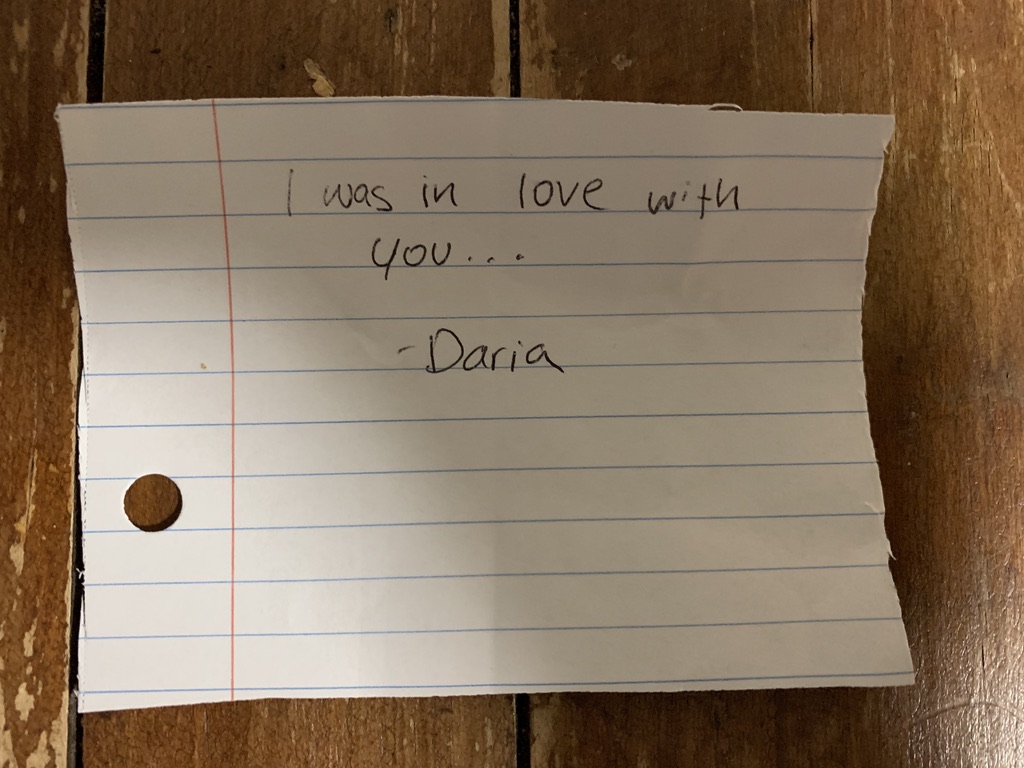 I was in love with
you...
-Daria